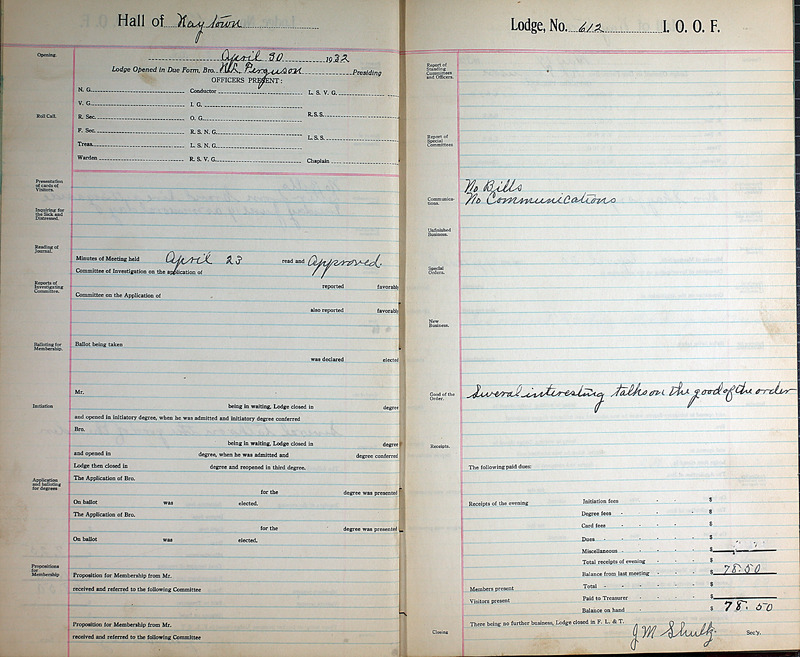 Hall of Naytown
Opening.
April 30 1932
Lodge Opened in Due Form, Bro. Perguson Presiding
OFFICERS PRESENT:
N. G. Conductor L. S. V. G.
V. G. I. G.
Roll Call.
R. Sec. O. G. R. S. S.
F. Sec. R. S. N. G.
Treas. L. S. N. G. L. S. S.
Warden R. S. V. G. Chaplain
Presentation of cards of Visitors.
Inquiring for the Sick and Distressed.
Reading of Journal.
Minutes of Meeting held April 23 read and Approved.
Committee of Investigation on the application of
Reports of Investigating Committee.
reported favorably
Committee on the Application of
also reported favorably
Balloting for Membership.
Ballot being taken
was declared elected
Mr.
Initiation
being in waiting, Lodge closed in degree
and opened in initiatory degree, when he was admitted and initiatory degree conferred
Bro.
being in waiting, Lodge closed in degree
and opened in degree, when he was admitted and degree conferred
Lodge then closed in degree and reopened in third degree.
Application and balloting for degrees
The Application of Bro.
for the degree was presented
On ballot was elected.
The Application of Bro.
for the degree was presented
On ballot was elected.
Propositions for Membership
Proposition for Membership from Mr.
received and referred to the following Committee
Proposition for Membership from Mr.
received and referred to the following Committee
Lodge, No. 612 I. O. O. F.
Report of Standing Committees and Officers.
Report of Special Committees
No Bills
Communications. No Communications
Unfinished Business.
Special Orders.
New Business.
Good of the Order. Several interesting talks on the good of the order
Receipts.
The following paid dues:
Receipts of the evening Initiation fees $
Degree fees $
Card fees $
Dues $
Miscellaneous $
Total receipts of evening $
Balance from last meeting $ 78.50
Members present Total $
Visitors present Paid to Treasurer $
Balance on hand $ 78.50
There being no further business, Lodge closed in F. L. & T.
Closing J M Shultz. Sec'y.